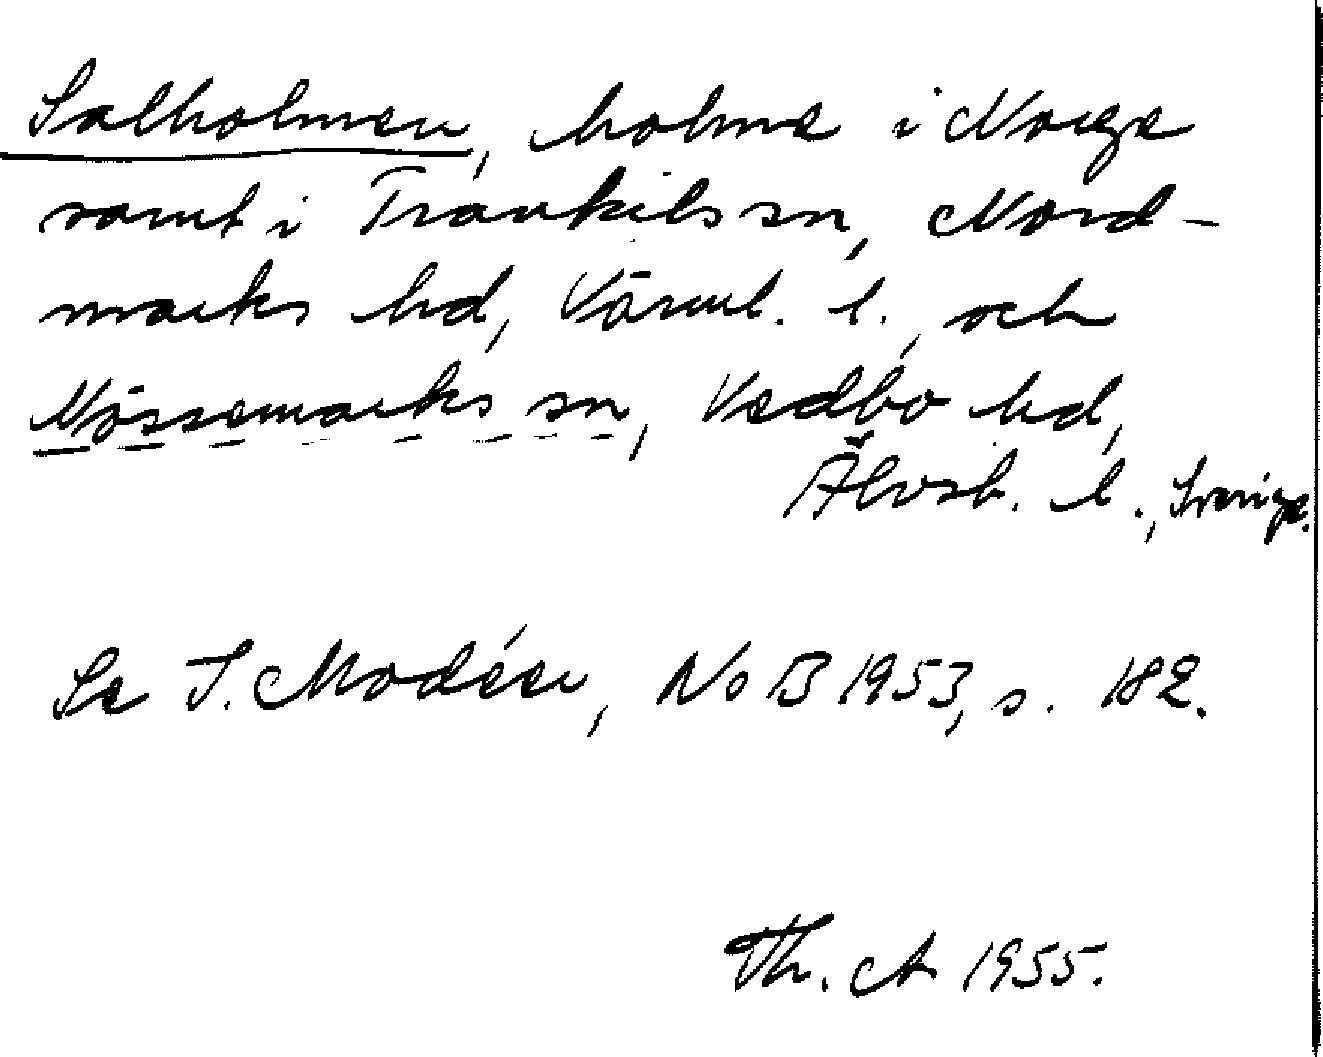 Salholmen, holme i Norge
samt i Trankils sn, Nord-
marks hd, Värml. l., och
Nössemarks sn, Vedbo hd,
Älvsb. l., Sverige.
Se I. Modéer, NoB 1953, s. 182.
Th. A 1955.